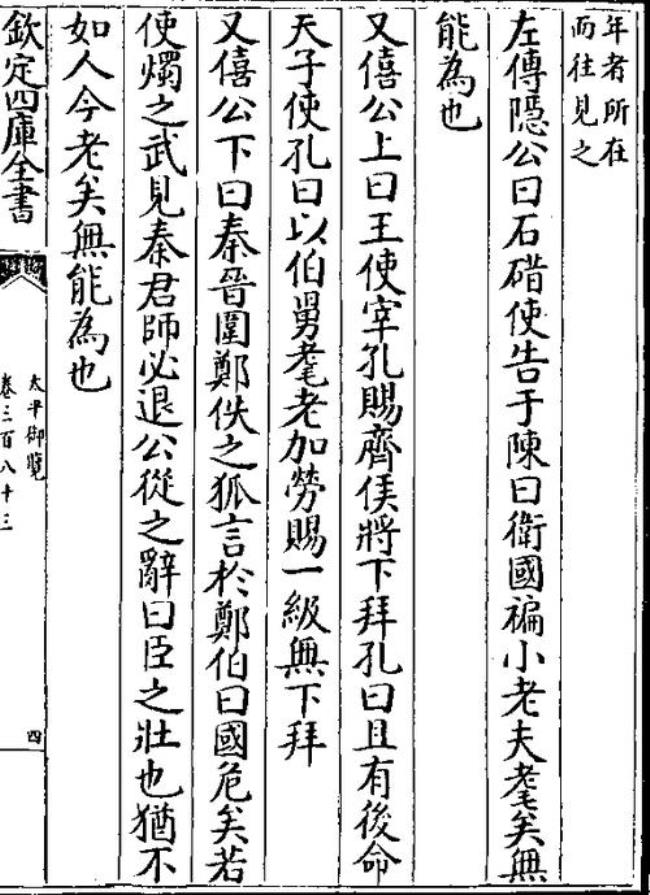 年者所在
而往見之
左傳隱公曰石碏使告于陳曰衛國褊小老夫耄矣無
能為也
又僖公上曰王使宰孔賜齊侯將下拜孔曰且有後命
天子使孔曰以伯舅耄老加勞賜一級無下拜
又僖公下曰秦晉圍鄭佚之狐言於鄭伯曰國危矣若
使燭之武見秦君師必退公從之辭曰臣之壯也猶不
如人今老矣無能為也
欽定四庫全書
太平御覽
卷三百八十三
四